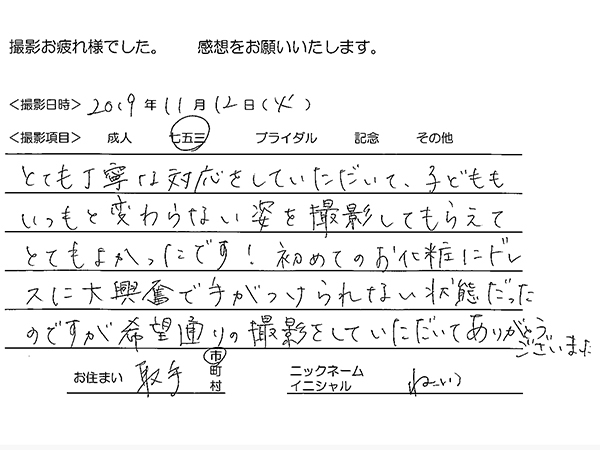 撮影お疲れ様でした。 感想をお願いいたします。
<撮影日時> 2019 年 11 月 12 日 (火)
<撮影項目> 成人 七五三 ブライダル 記念 その他
とても丁寧な対応をしていただいて、子どもも
いつもと変わらない姿を撮影してもらえて
とてもよかったです！ 初めてのお化粧にドレ
スに大興奮で手がつけられない状態だった
のですが希望通りの撮影をしていただいてありがとう
ございました
お住まい 取手 市町村
ニックネーム
イニシャル